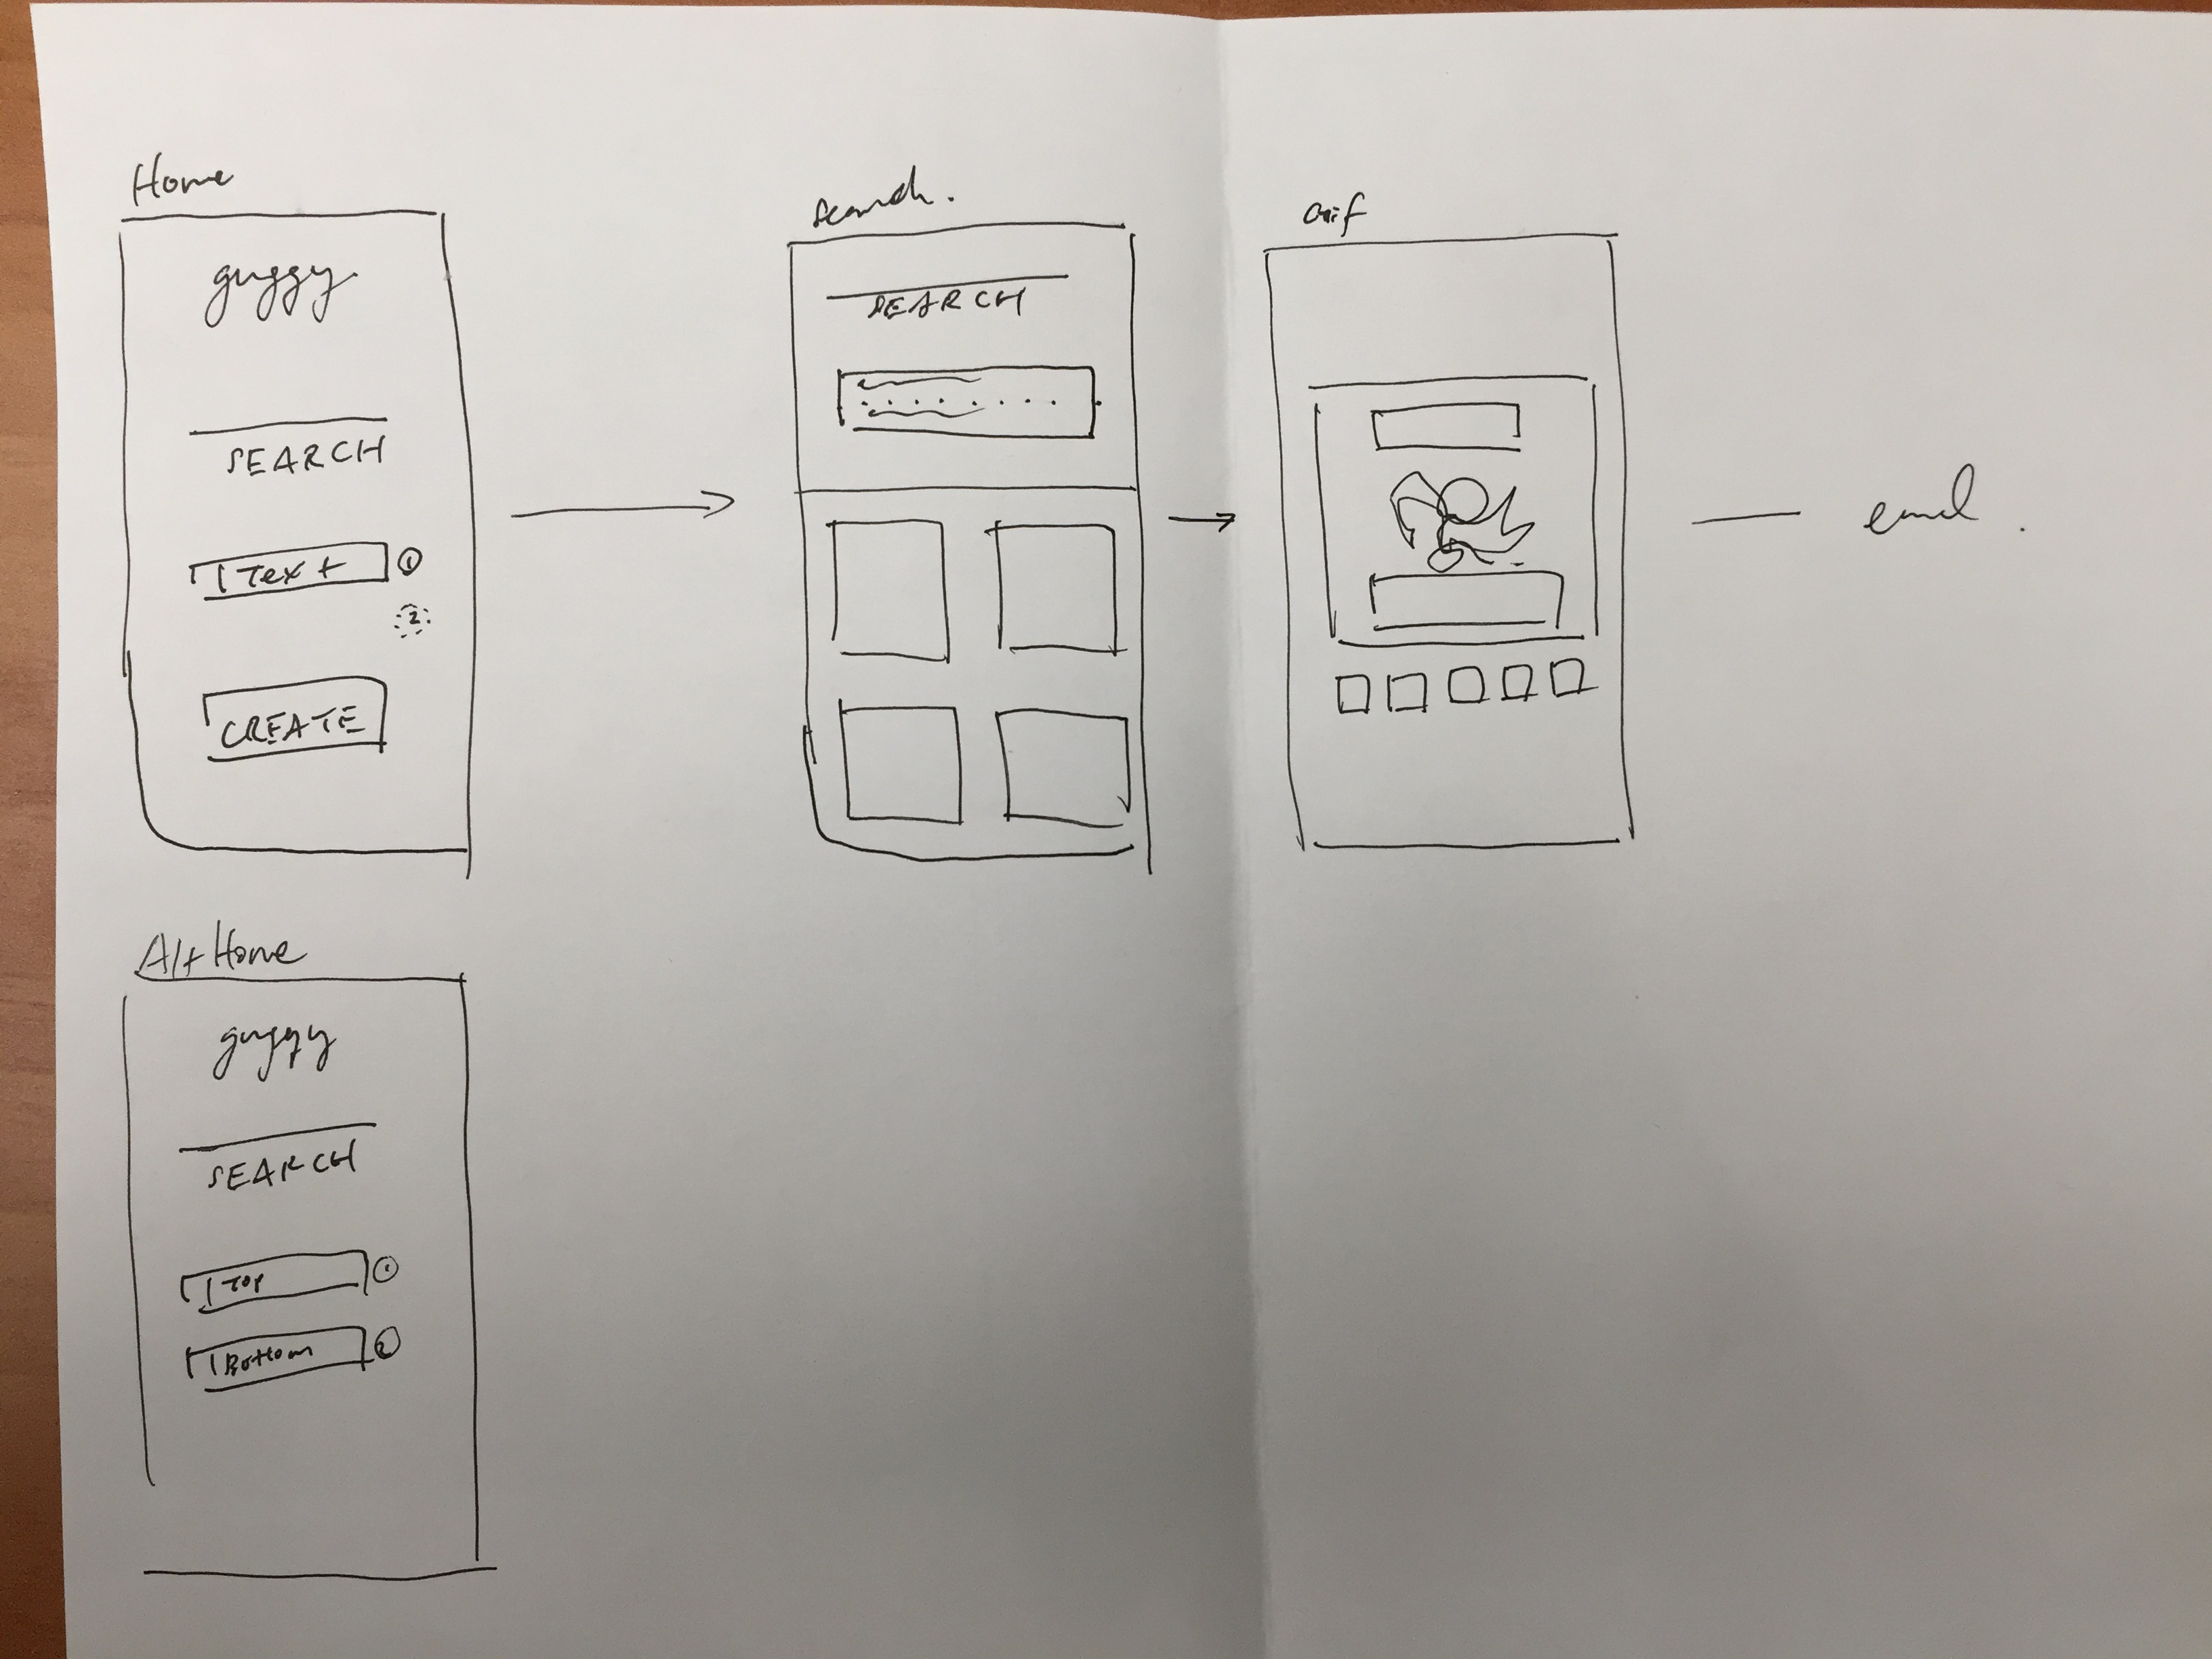 Home
guggy
SEARCH
Text 1
2
CREATE
Search.
SEARCH
Gif
end.
Alt Home
guggy
SEARCH
Top 1
Bottom 2